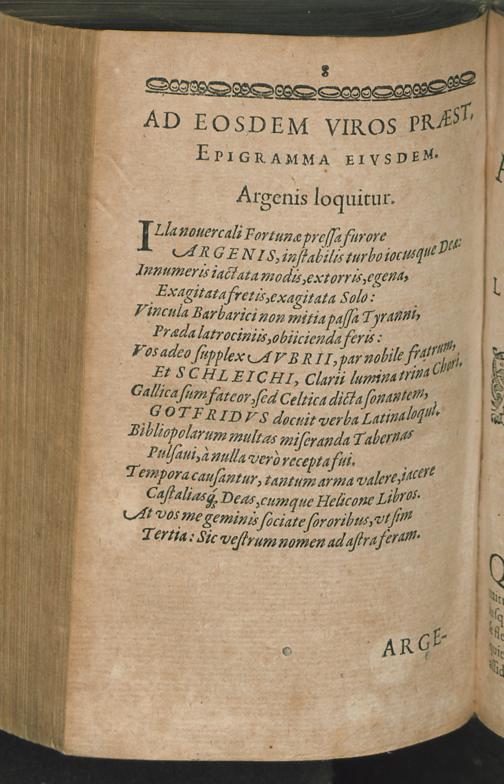 8
AD EOSDEM VIROS PRÆST.
EPIGRAMMA EIVSDEM.
Argenis loquitur.
ILla nouercali Fortunæ pressa furore
ARGENIS, instabilis turbo iocusque Deæ:
Innumeris iactata modis, extorris, egena,
Exagitata fretis, exagitata Solo:
Vincula Barbarici non mitia passa Tyranni,
Præda latrociniis, obiicienda feris:
Vos adeo supplex AVBRII, par nobile fratrum,
Et SCHLEICHI, Clarii lumina trina Chori.
Gallica sum fateor, sed Celtica dicta sonantem,
GOTFRIDVS docuit verba Latina loqui.
Bibliopolarum multas miseranda Tabernas
Pulsaui, à nulla verò recepta fui.
Tempora causantur, tantum arma valere, iacere
Castaliasq́; Deas, cumque Helicone Libros.
At vos me geminis sociate sororibus, vt sim
Tertia: Sic vestrum nomen ad astra feram.
ARGE-